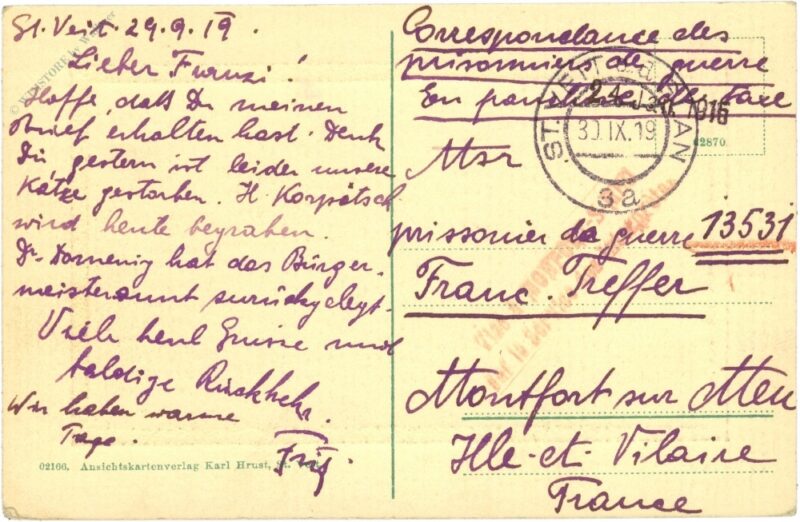 St. Veit. 29.9.19.
Lieber Franzi!
Hoffe, daß Du meinen
Brief erhalten hast. Denk
Dir gestern ist leider unsere
Katze gestorben. H. Korpätsch
wird heute begraben.
Dr. Domenig hat das Bürger-
meisteramt zurückgelegt.
Viele herzl Grüsse und
baldige Rückkehr.
Wir haben warme
Tage.
Fritz.
02166. Ansichtskartenverlag Karl Hrust, St.
Correspondance des
prisonniers de guerre
En franchise de taxe
ST. VEIT a.d. GLAN
30.IX.19
3a
1916
62870
Msr
prissonier da guerre 13531
Franc. Treffer
Montfort sur Meu
Ille-et-Vilaire
France